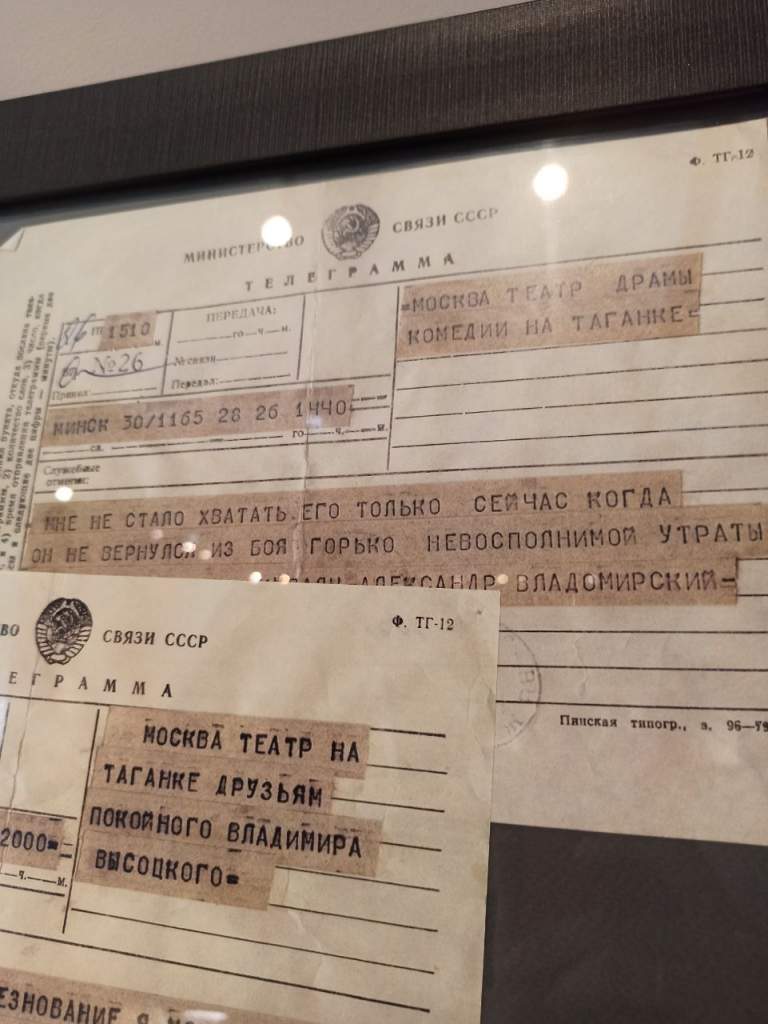 Ф. ТГ-12
МИНИСТЕРСТВО СВЯЗИ СССР
ТЕЛЕГРАММА
1510
ПЕРЕДАЧА:
го ч. м.
№26
№ связи
Принял:
Передал:
=МОСКВА ТЕАТР ДРАМЫ
КОМЕДИИ НА ТАГАНКЕ=
МИНСК 30/1165 28 26 1440=
сл. го ч. м.
Служебные
отметки:
МНЕ НЕ СТАЛО ХВАТАТЬ ЕГО ТОЛЬКО СЕЙЧАС КОГДА
ОН НЕ ВЕРНУЛСЯ ИЗ БОЯ ГОРЬКО НЕВОСПОЛНИМОЙ УТРАТЫ
АЛЕКСАНДР ВЛАДОМИРСКИЙ=
Пинская типогр., з. 96—79
ВО СВЯЗИ СССР
Ф. ТГ-12
ЕГРАММА
МОСКВА ТЕАТР НА
ТАГАНКЕ ДРУЗЬЯМ
ПОКОЙНОГО ВЛАДИМИРА
ВЫСОЦКОГО=
2000=
ч. м.
ЕЗНОВАНИЕ